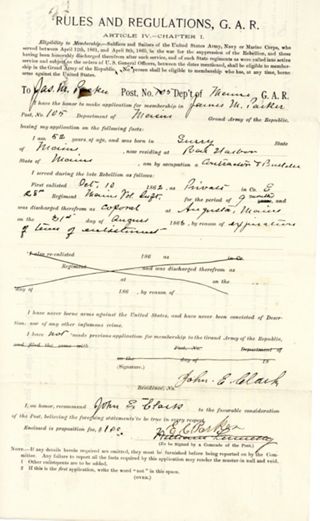 RULES AND REGULATIONS, G. A. R.
ARTICLE IV.—CHAPTER I.
Eligibility to Membership.—Soldiers and Sailors of the United States Army, Navy or Marine Corps, who
served between April 12th, 1861, and April 9th, 1865, in the war for the suppression of the Rebellion, and those
having been honorably discharged therefrom after such service, and of such State regiments as were called into active
service and subject to the orders of U. S. General Officers, between the dates mentioned, shall be eligible to member-
ship in the Grand Army of the Republic. No person shall be eligible to membership who has, at any time, borne
arms against the United States.
To Jas. M. Parker Post, No. 105 Dep't of Maine, G. A. R.
I have the honor to make application for membership in James M. Parker
Post, No. 105 Department of Maine Grand Army of the Republic,
basing my application on the following facts:
I am 52 years of age, and was born in Surry State
of Maine, now residing at Bar Harbor
State of Maine, am by occupation a Contractor & Builder
I served during the late Rebellion as follows:
First enlisted Oct. 13 1862, as Private in Co. E
28th Regiment Maine Vol. for the period of 9 months
and was discharged therefrom as Coporal at Augusta, Maine
on the 31st day of August 1863, by reason of expiration
of term of enlistment
I also re-enlisted 186 as in Co.
Regiment and was discharged therefrom as
at on the
day of 186 , by reason of
I have never borne arms against the United States, and have never been convicted of Deser-
tion; nor of any other infamous crime.
I have not made previous application for membership to the Grand Army of the Republic,
and filed the same with Post, No. Department of
on the day of 18
(Signature.) John E. Clark
Residence, No.
I, on honor, recommend John E. Clark to the favorable consideration
of the Post, believing the foregoing statements to be true in every respect.
Enclosed is proposition fee, $1.00.
(To be signed by a Comrade of the Post.)
NOTE.—If any details herein required are omitted, they must be furnished before being reported on by the Com-
mittee. Any failure to report all the facts required by this application may render the muster-in null and void.
1 Other enlistments are to be added.
2 If this is the first application, write the word "not" in this space.
(OVER.)